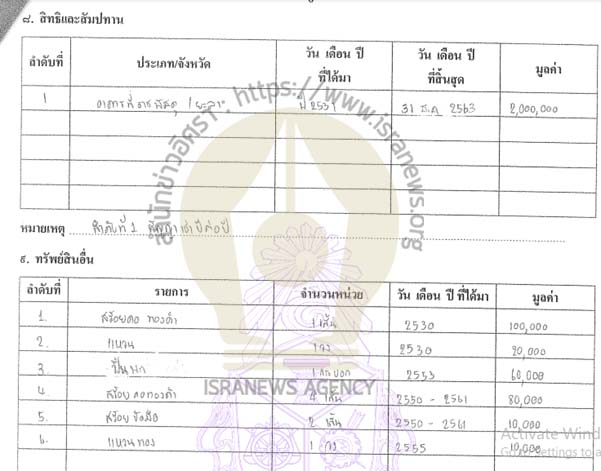 ๘. สิทธิและสัมปทาน
ลำดับที่ ประเภท/จังหวัด วัน เดือน ปี ที่ได้มา วัน เดือน ปี ที่สิ้นสุด มูลค่า
1 อาคารที่ราชพัสดุ / ยะลา ปี 2531 31 ธ.ค. 2563 2,000,000
หมายเหตุ ลำดับที่ 1 สัญญาเช่าปีต่อปี
๙. ทรัพย์สินอื่น
ลำดับที่ รายการ จำนวนหน่วย วัน เดือน ปี ที่ได้มา มูลค่า
1. สร้อยคอ ทองคำ 1 เส้น 2530 100,000
2. แหวน 1 วง 2530 20,000
3 ปืนพก 1 กระบอก 2553 60,000
4 สร้อย คอทองคำ 4 เส้น 2550 - 2561 80,000
5. สร้อย ข้อมือ 2 เส้น 2550 - 2561 10,000
6. แหวนทอง 1 วง 2555 10,000
สำนักข่าวอิศรา: https://www.isranews.org
ISRANEWS AGENCY
Activate Wind
Go to Settings to a